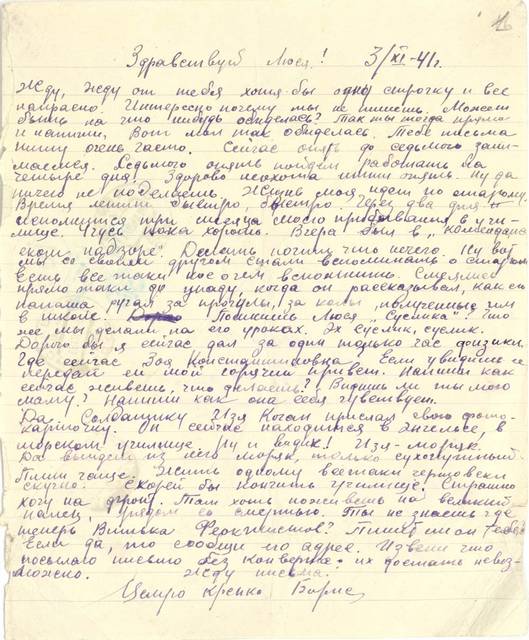 Здравствуй Люся! 3/XI-41г.
Жду, жду от тебя хотя-бы одну строчку и все
напрасно. Интересно почему ты не пишешь. Может
быть на что нибудь обиделась? Так ты тогда прямо
и напиши, Вот мол так обиделась. Тебе письма
пишу очень часто. Сейчас опять до седьмого зани-
маемся. Седьмого опять пойдем работать на
четыре дня. Здорово неохота идти опять. Ну да
ничего не поделаешь. Жизнь моя идет по старому.
Время летит быстро, быстро. Через два дня
исполнится три месяца моего пребывания в учи-
лище. Учусь пока хорошо. Вчера был в „комендант
ском надзоре". Делать почти что нечего. Ну вот
мы со своим другом стали вспоминать о старом
Есть все таки кое о чем вспомнить. Смеялись
прямо таки до упаду, когда он рассказывал, как его
папаша ругал за прогулы, за колы, полученные им
в школе. Помнишь Люся „Суслика"? Что
же мы делали на его уроках. Эх суслик, суслик.
Дорого бы я сейчас дал за один только час физики.
Где сейчас Зоя Константиновна? Если увидишь ее
передай ей мой горячий привет. Напиши как
сейчас живешь, что делаешь? Видишь ли ты мою
маму? Напиши как она себя чувствует.
Да. Солдащику Изя Коган прислал свою фото-
карточку. Он сейчас находится в Энгельсе, в
морском училище. Ну и видик! Изя-моряк.
Да выйдет из него моряк, только сухопутный.
Пиши чаще. Жить одному все таки чертовски
скучно. Скорей бы кончить училище! Страшно
хочу на фронт. Там хоть поживешь на великий
палец, рядом со смертью. Ты не знаешь где
теперь Витька Феоктистов? Пишет ли он
Если да, то сообщи его адрес. Извини что
посылаю письмо без конверта - их достать невоз-
можно. Жду письма!
Целую крепко Борис